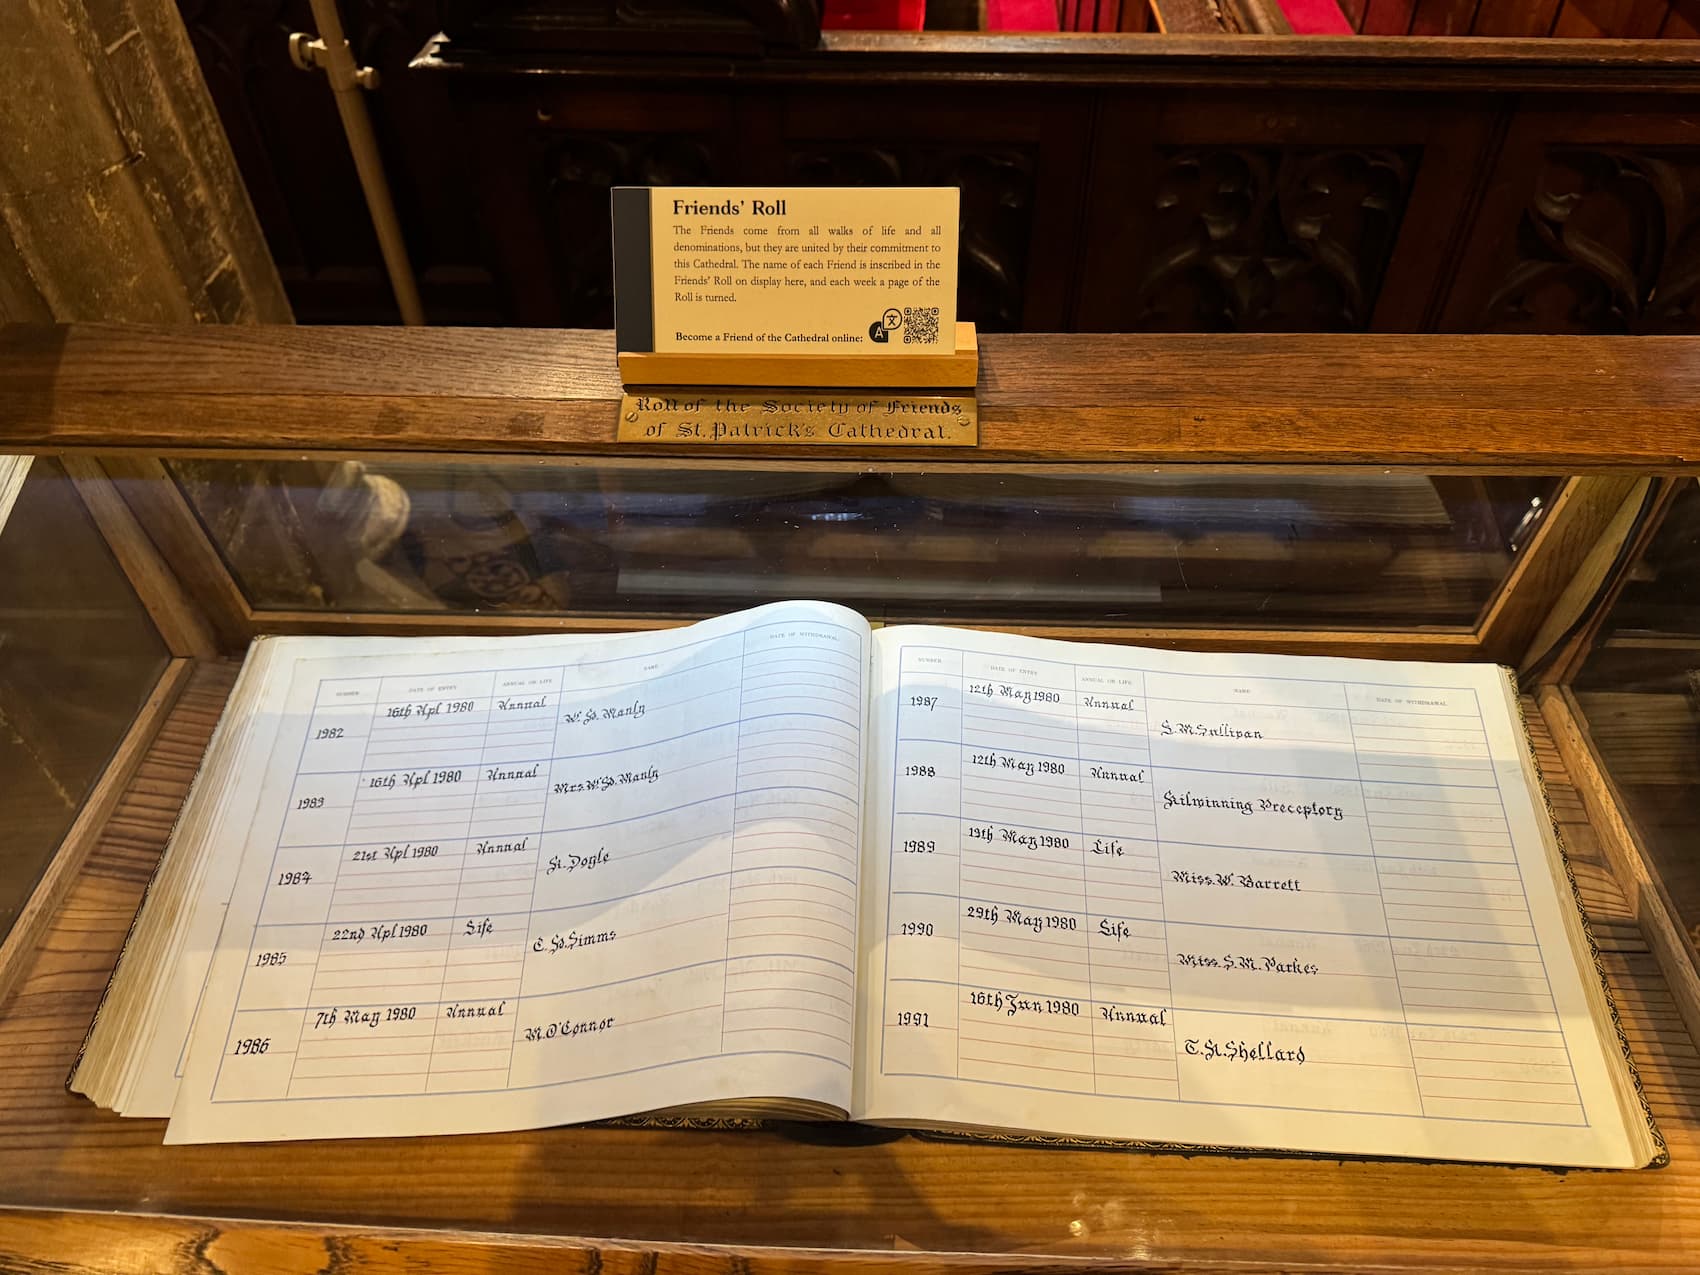 Friends' Roll
The Friends come from all walks of life and all
denominations, but they are united by their commitment to
this Cathedral. The name of each Friend is inscribed in the
Friends' Roll on display here, and each week a page of the
Roll is turned.
Become a Friend of the Cathedral online:
Roll of the Society of Friends
of St. Patrick's Cathedral.
NUMBER DATE OF ENTRY ANNUAL OR LIFE NAME DATE OF WITHDRAWAL
1982 16th Apl 1980 Annual Manly
1983 16th Apl 1980 Annual Mrs. Manly
1984 21st Apl 1980 Annual Doyle
1985 22nd Apl 1980 Life Simms
1986 7th May 1980 Annual M. O'Connor
NUMBER DATE OF ENTRY ANNUAL OR LIFE NAME DATE OF WITHDRAWAL
1987 12th May 1980 Annual S. M. Sullivan
1988 12th May 1980 Annual Kilwinning Preceptory
1989 19th May 1980 Life Miss. W. Barrett
1990 29th May 1980 Life Miss. S. M. Parkes
1991 16th Jun 1980 Annual Shellard